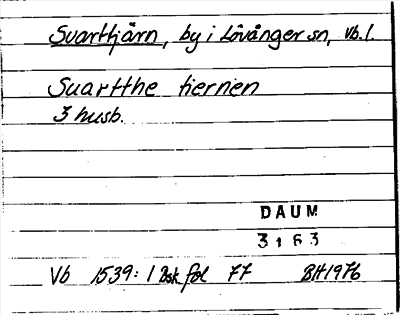 Svarttjärn, by i Lövånger sn, Vb. l.
Suartthe tiernen
3 husb.
DAUM
3163
Vb 1539: 1 Bsk fol 77 BH 1976